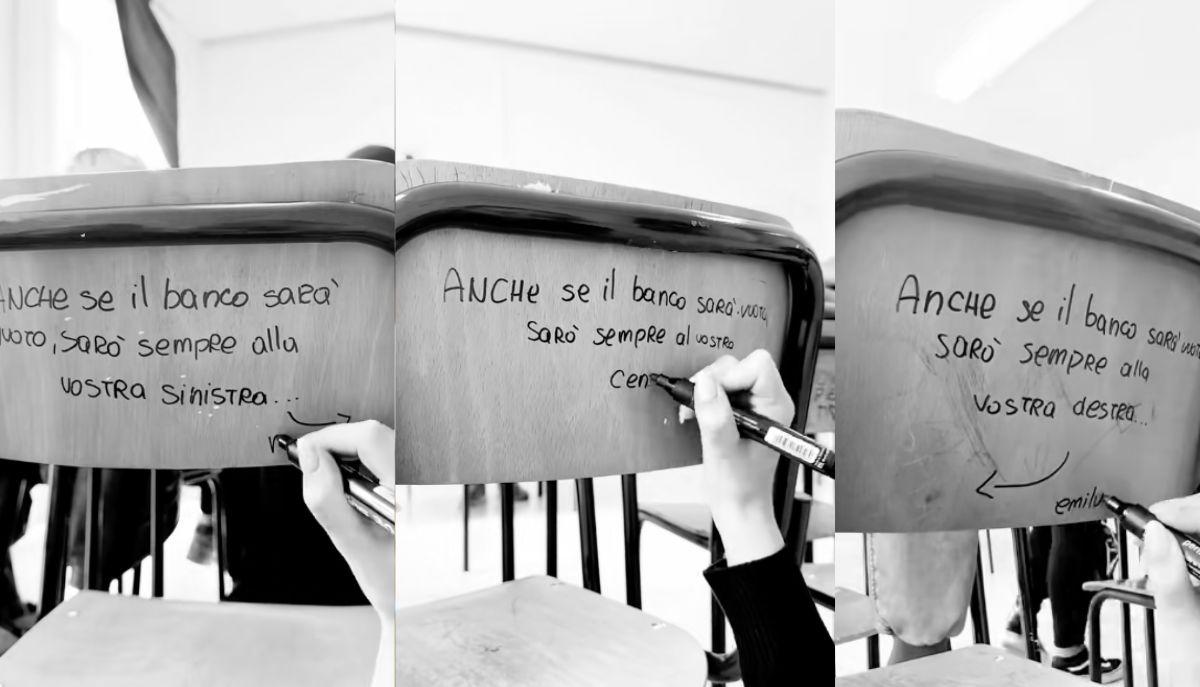 ANCHE se il banco sarà
vuoto, sarò sempre alla
vostra sinistra...
ANCHE se il banco sarà vuoto,
sarò sempre al vostro
cen
Anche se il banco sarà vuoto
sarò sempre alla
vostra destra...
emilu